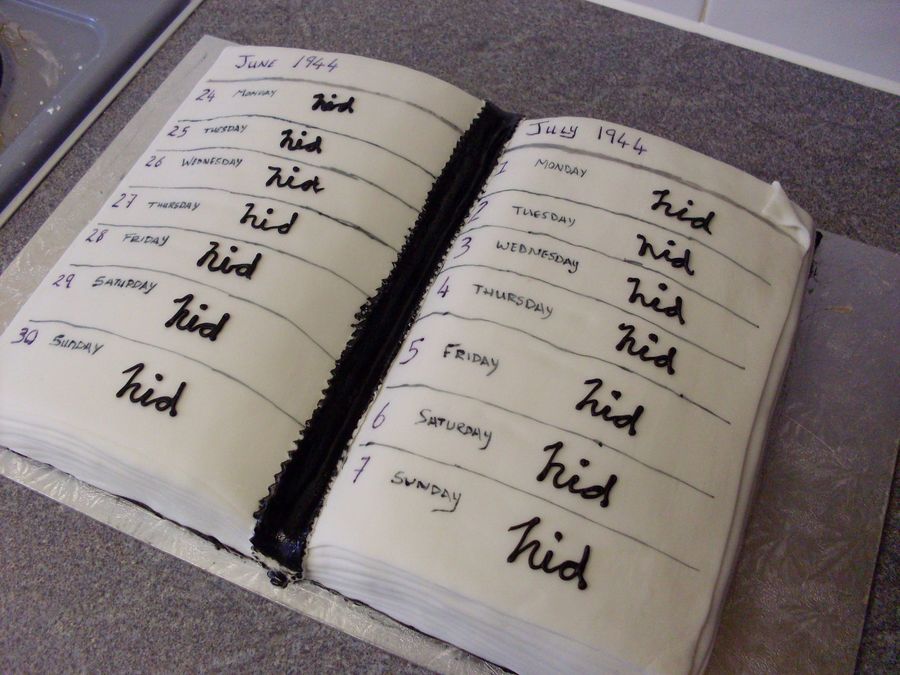 JUNE 1944
24 MONDAY hid
25 TUESDAY hid
26 WEDNESDAY hid
27 THURSDAY hid
28 FRIDAY hid
29 SATURDAY hid
30 SUNDAY hid
JULY 1944
1 MONDAY hid
2 TUESDAY hid
3 WEDNESDAY hid
4 THURSDAY hid
5 FRIDAY hid
6 SATURDAY hid
7 SUNDAY hid